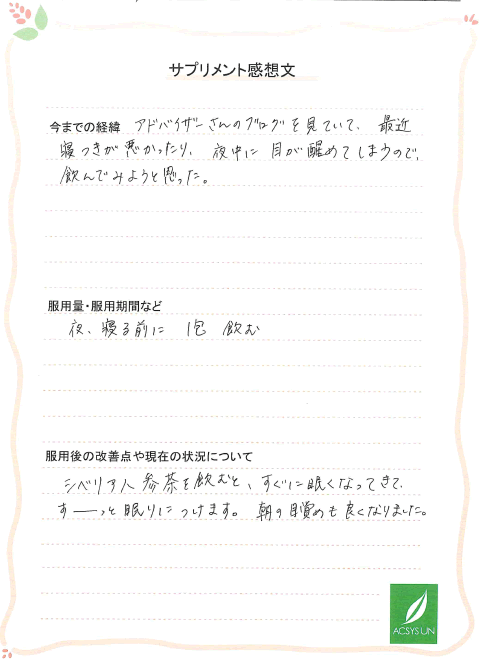 サプリメント感想文
今までの経緯 アドバイザーさんのブログを見ていて、最近
寝つきが悪かったり、夜中に目が醒めてしまうので、
飲んでみようと思った。
服用量・服用期間など
夜、寝る前に 1包 飲む
服用後の改善点や現在の状況について
シベリア人参茶を飲むと、すぐに眠くなってきて、
すーっと眠りにつけます。朝の目覚めも良くなりました。
ACSYS UN